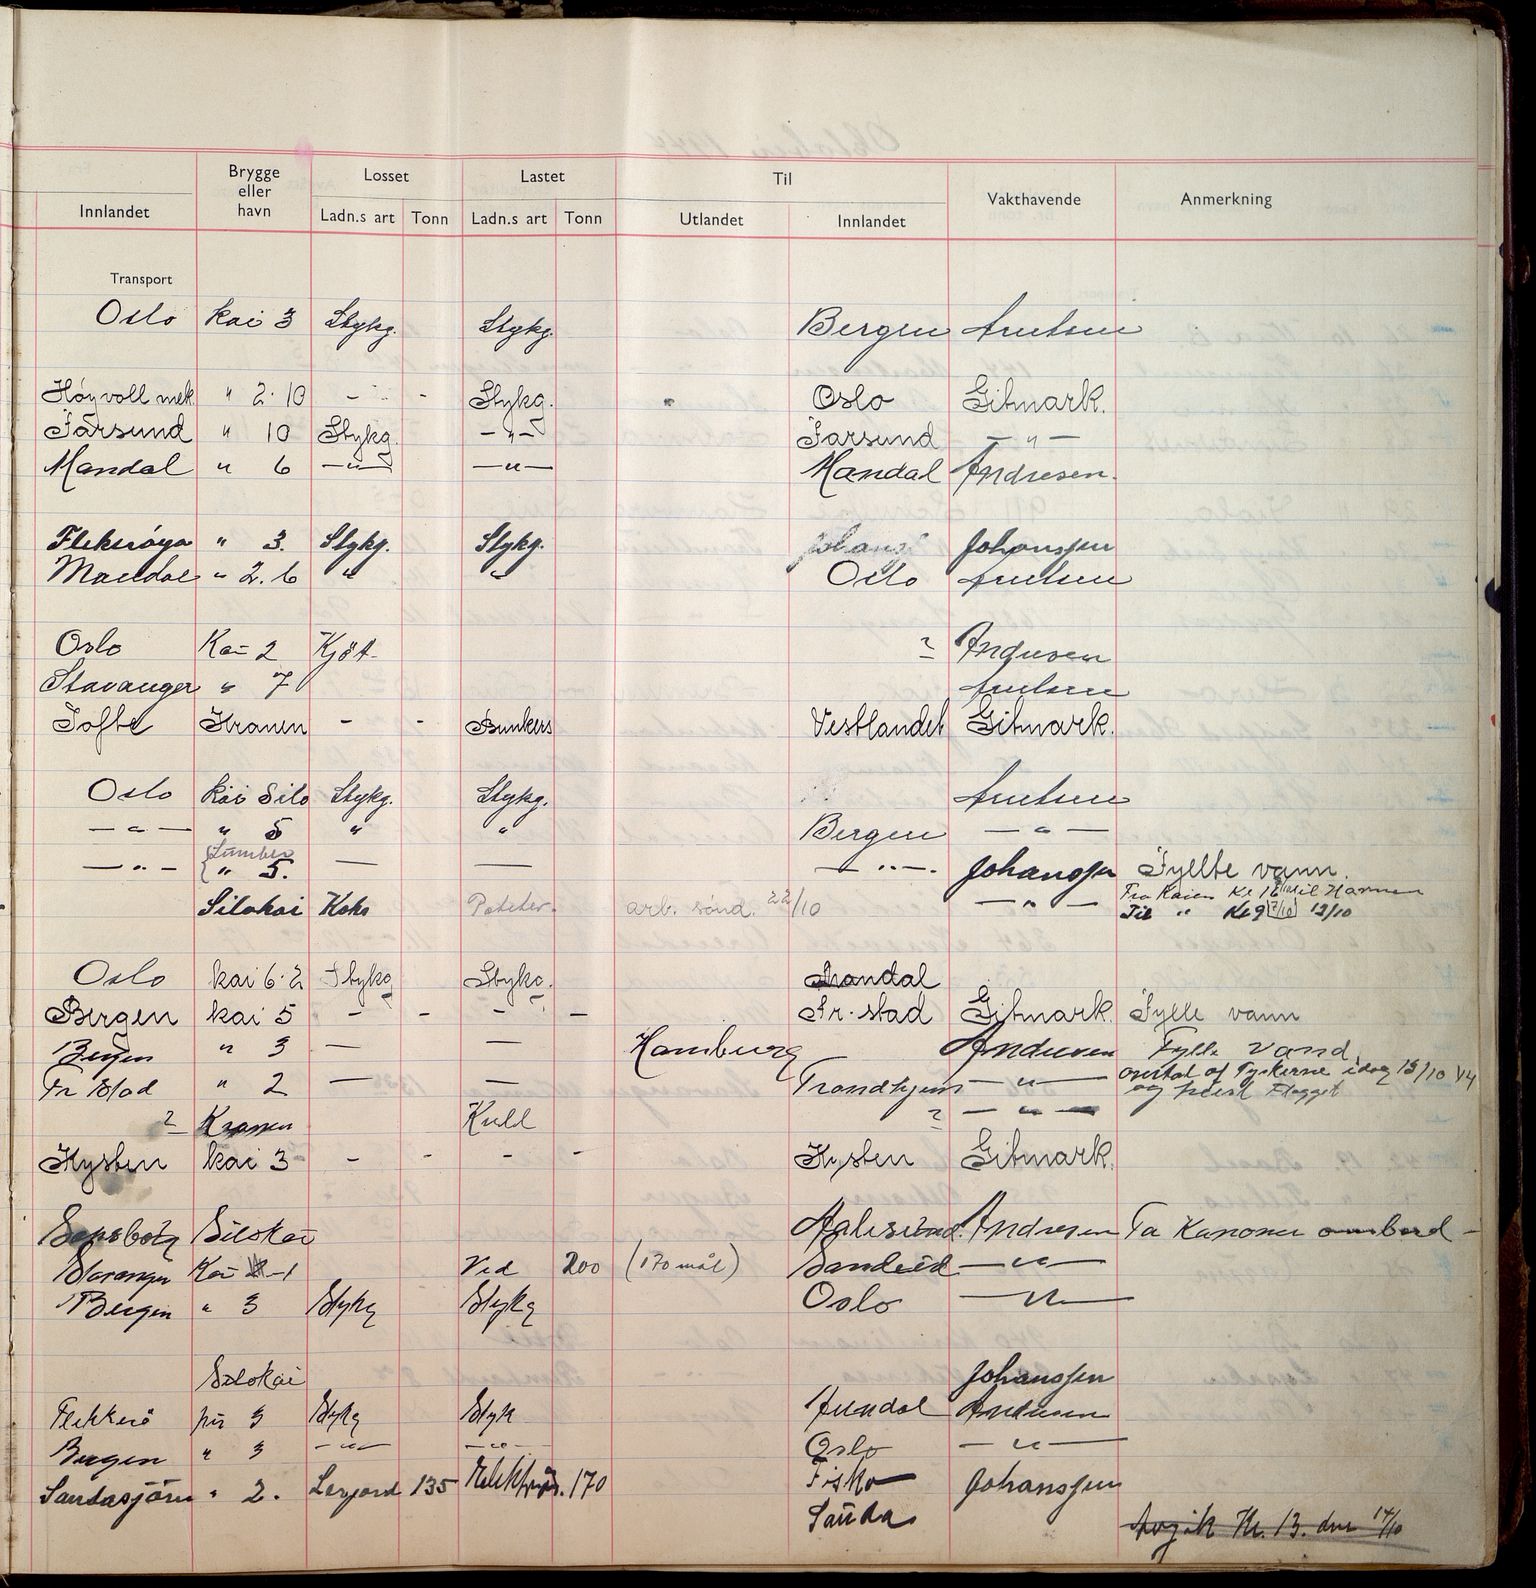 Brygge eller havn Losset Lastet Til Vakthavende Anmerkning
Innlandet Ladn.s art Tonn Ladn.s art Tonn Utlandet Innlandet
Transport
Oslo kai 3 Stykg. Stykg. Bergen
Høyvoll mek. " 2.10 - - Stykg. Oslo Gitmark.
Farsund " 10 Stykg. -"- Farsund -"-
Mandal " 6 -"- -"- Mandal Andresen.
Flekerøya " 3. Stykg. Stykg. Johanssen
Mandal " 2.6 " " Oslo
Oslo Kai 2 Kjøt ? Andresen
Stavanger " 7
Tofte Kranen - - Bunkers Vestlandet Gitmark.
Oslo kai Silo Stykg. Stykg.
-"- " 5 " " Bergen -"-
-"- " 5. — — -"- Johanssen Fyllte vann.
Silokai Koks Poteter. arb. sønd. 22/10 -"- Fra Kaien Kl 16 til Havnen
Til " Kl 9 13/10
Oslo kai 6.2 Stykg Stykg. Mandal
Bergen kai 5 - - - - Fr.stad Gitmark. Fylle vann
Bergen " 3 — — Hamburg Andresen Fylle vand,
Fr Stad " 2 — — Trondhjem -"- overtat af Tyskerne idag 13/10 44
og heist Flagget
? Kranen Kull ? -"-
Kysten kai 3 - - - - Kysten Gitmark.
Sarpsborg Silokai Aalesund. Andresen Ta Kanoner ombord -
Stavanger Kai 1 Ved 200 (170 mål) Sandeid -"-
Bergen " 3 Stykg Stykg Oslo -"-
Silokai Johanssen
Flekkerø pir 3 Stykg Styk Arendal Andresen
Bergen " 3 -"- -"- Oslo -"-
Sandasjøen " 2. 135 170 Fisko Johanssen
Sauda
Avgik Kl. 13. den 14/10